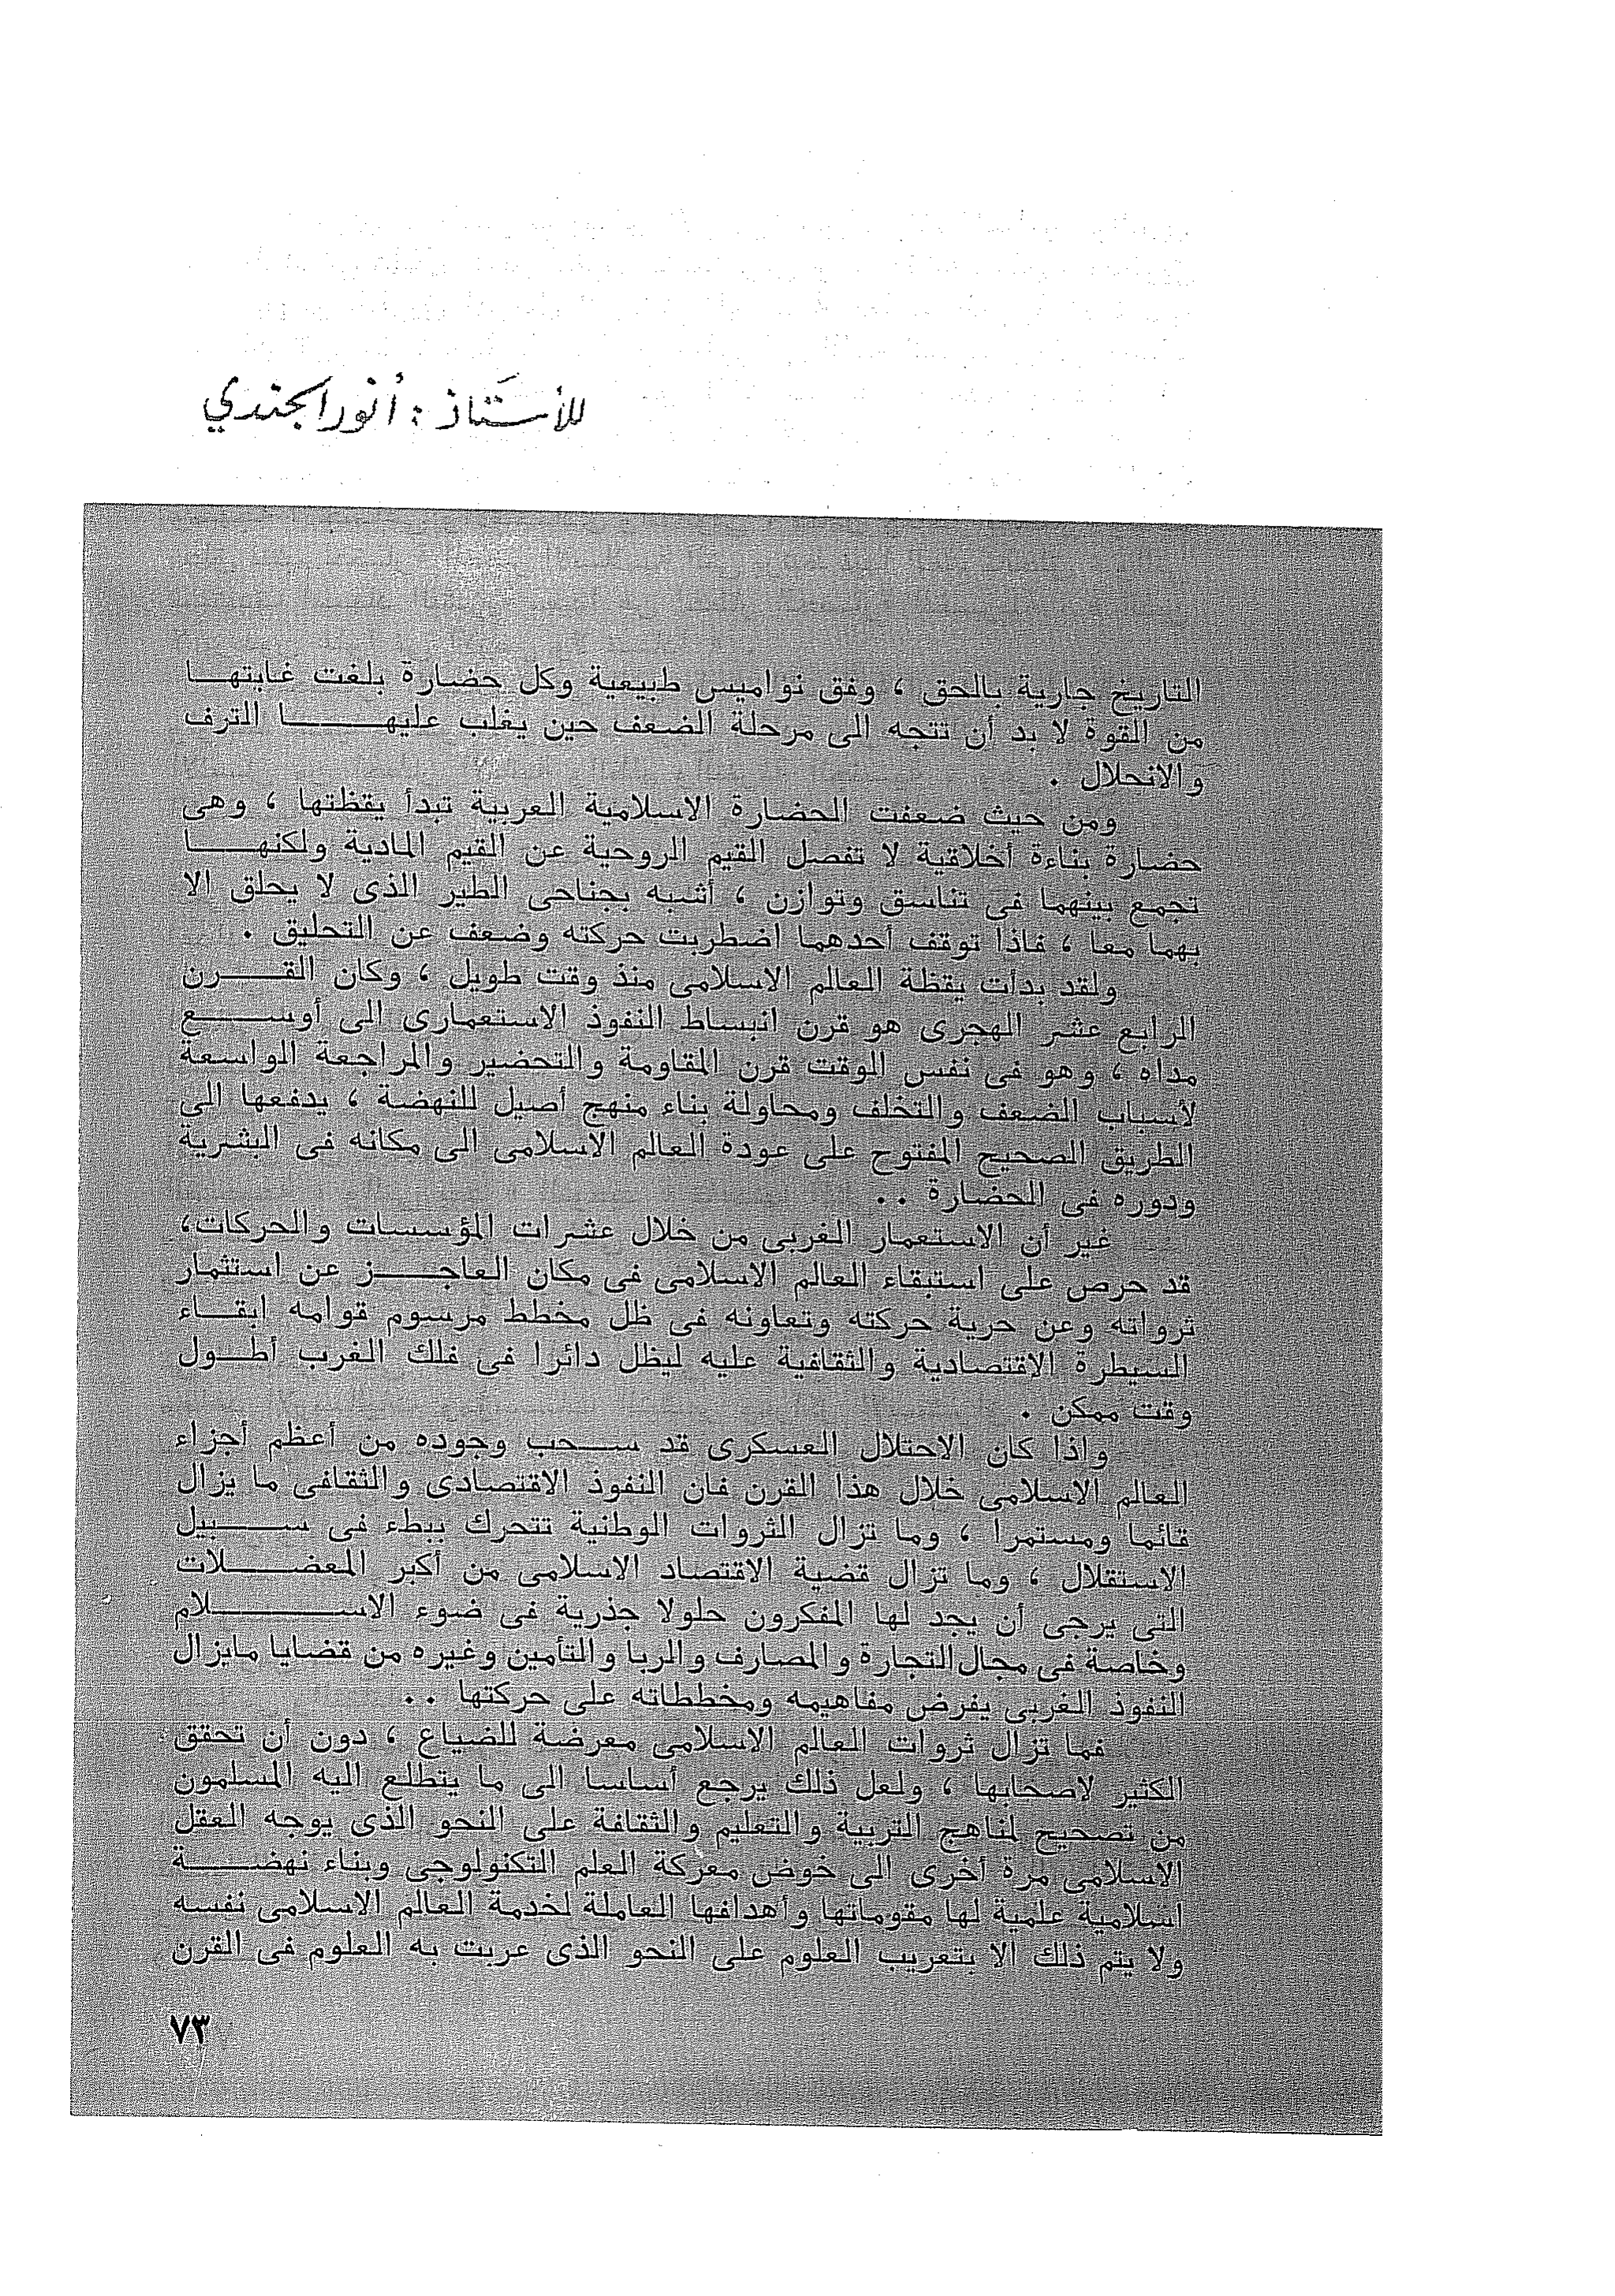 للأستاذ : أنور الجندي
التاريخ جارية بالحق ، وفق نواميس طبيعية وكل حضارة بلغت غايتها
من القوة لا بد أن تتجه الى مرحلة الضعف حين يغلب عليها الترف
والانحلال .
ومن حيث ضعفت الحضارة الاسلامية العربية تبدأ يقظتها ، وهى
حضارة بناءة أخلاقية لا تفصل القيم الروحية عن القيم المادية ولكنها
تجمع بينهما فى تناسق وتوازن ، أشبه بجناحى الطير الذى لا يحلق الا
بهما معا ، فاذا توقف أحدهما اضطربت حركته وضعف عن التحليق .
ولقد بدأت يقظة العالم الاسلامى منذ وقت طويل ، وكان القرن
الرابع عشر الهجرى هو قرن انبساط النفوذ الاستعمارى الى أوسع
مداه ، وهو فى نفس الوقت قرن المقاومة والتحضير والمراجعة الواسعة
لأسباب الضعف والتخلف ومحاولة بناء منهج أصيل للنهضة ، يدفعها الى
الطريق الصحيح المفتوح على عودة العالم الاسلامى الى مكانه فى البشرية
ودوره فى الحضارة ..
غير أن الاستعمار الغربى من خلال عشرات المؤسسات والحركات،
قد حرص على استبقاء العالم الاسلامى فى مكان العاجز عن استثمار
ثرواته وعن حرية حركته وتعاونه فى ظل مخطط مرسوم قوامه ابقاء
السيطرة الاقتصادية والثقافية عليه ليظل دائرا فى فلك الغرب أطول
وقت ممكن .
واذا كان الاحتلال العسكرى قد سحب وجوده من أعظم أجزاء
العالم الاسلامى خلال هذا القرن فان النفوذ الاقتصادى والثقافى ما يزال
قائما ومستمرا ، وما تزال الثروات الوطنية تتحرك ببطء فى سبيل
الاستقلال ، وما تزال قضية الاقتصاد الاسلامى من أكبر المعضلات
التى يرجى أن يجد لها المفكرون حلولا جذرية فى ضوء الاسلام
وخاصة فى مجال التجارة والمصارف والربا والتأمين وغيره من قضايا مايزال
النفوذ الغربى يفرض مفاهيمه ومخططاته على حركتها ..
فما تزال ثروات العالم الاسلامى معرضة للضياع ، دون أن تحقق
الكثير لاصحابها ، ولعل ذلك يرجع أساسا الى ما يتطلع اليه المسلمون
من تصحيح لمناهج التربية والتعليم والثقافة على النحو الذى يوجه العقل
الاسلامى مرة أخرى الى خوض معركة العلم التكنولوجى وبناء نهضة
اسلامية علمية لها مقوماتها وأهدافها العاملة لخدمة العالم الاسلامى نفسه
ولا يتم ذلك الا بتعريب العلوم على النحو الذى عربت به العلوم فى القرن
٧٣